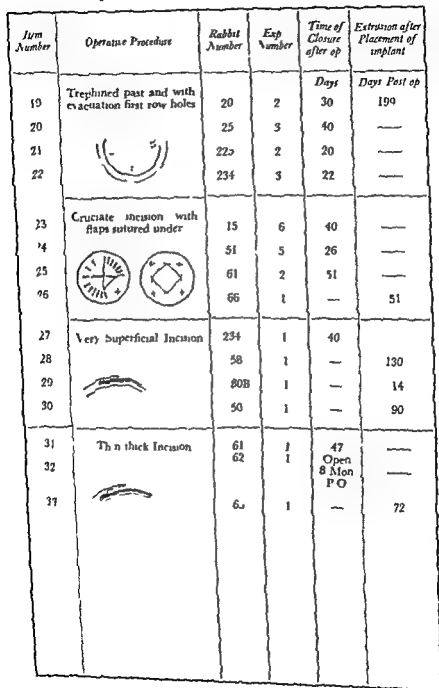 Item Number Operative Procedure Rabbit Number Exp Number Time of Closure after op Extrusion after Placement of implant
Days Days Post op
19 Trephined past and with evacuation first row holes 20 2 30 199
20 25 3 40 —
21 225 2 20 —
22 234 3 22 —
23 Cruciate incision with flaps sutured under 15 6 40 —
24 51 5 26 —
25 61 2 51 —
26 66 1 — 51
27 Very Superficial Incision 234 1 40
28 58 1 — 130
29 80B 1 — 14
30 50 1 — 90
31 Thin thick Incision 61 1 47 —
32 62 1 Open 8 Mon P O —
1 — 72